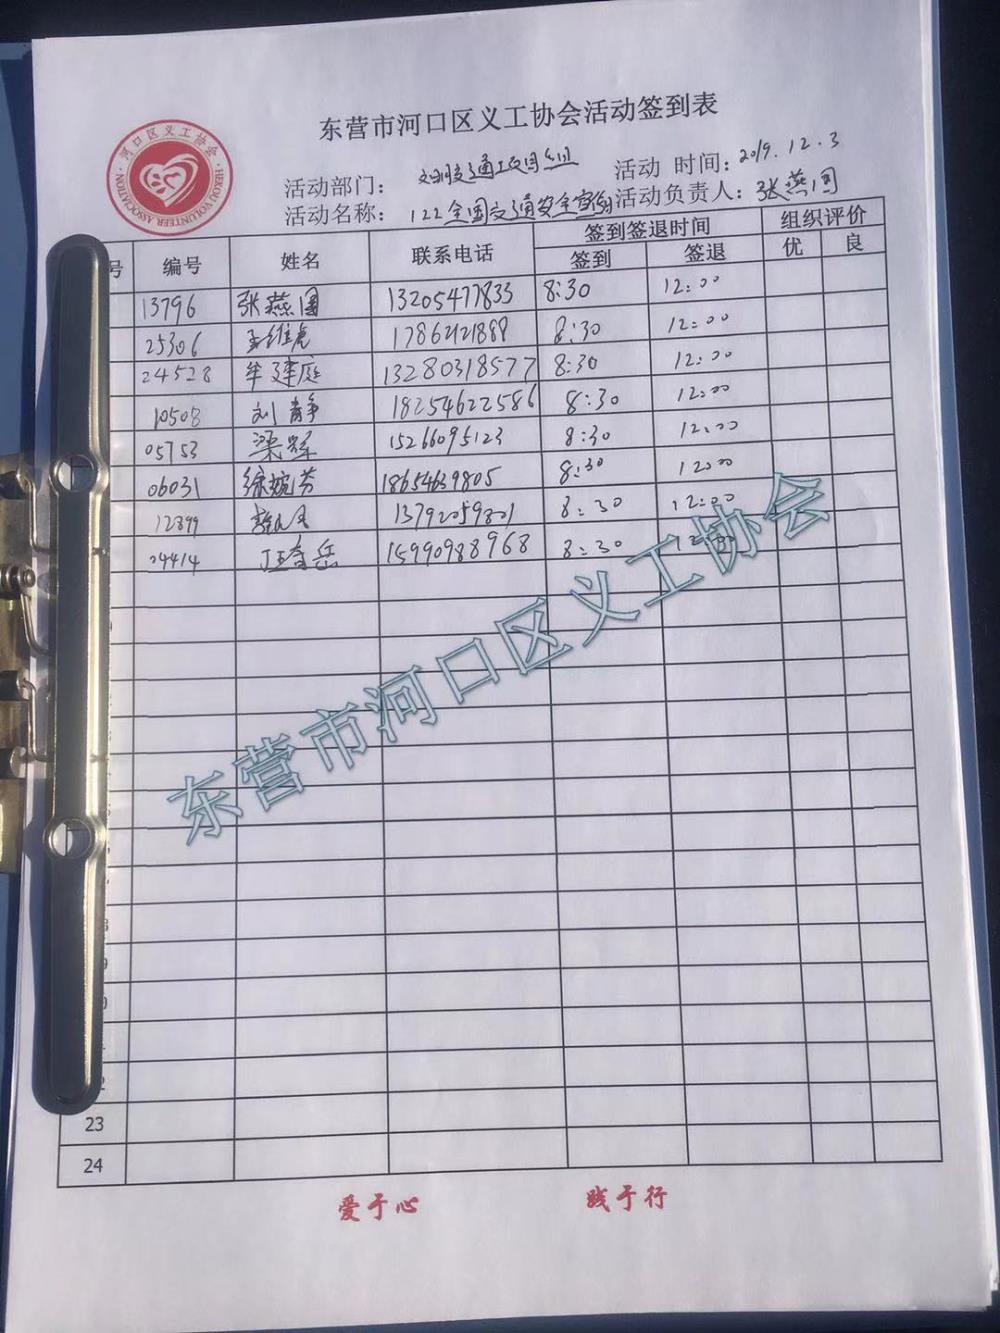 东营市河口区义工协会活动签到表
河口区义工协会
HEKOU VOLUNTEER ASSOCIATION
活动部门： 文明交通项目组 活动 时间：2019.12.3
活动名称： 122全国交通安全宣传 活动负责人：张燕国
号 编号 姓名 联系电话 签到签退时间 组织评价
签到 签退 优 良
13796 张燕国 13205477833 8:30 12:00
25306 王维虎 17862121888 8:30 12:00
24528 牟建庭 13280318577 8:30 12:00
10508 刘静 18254622586 8:30 12:00
05753 梁辉 15266095123 8:30 12:00
06031 徐婉芳 18654639805 8:30 12:00
12899 13792059801 8:30 12:00
24414 岳 15990988968 8:30 12:00
东营市河口区义工协会
23
24
爱于心 践于行